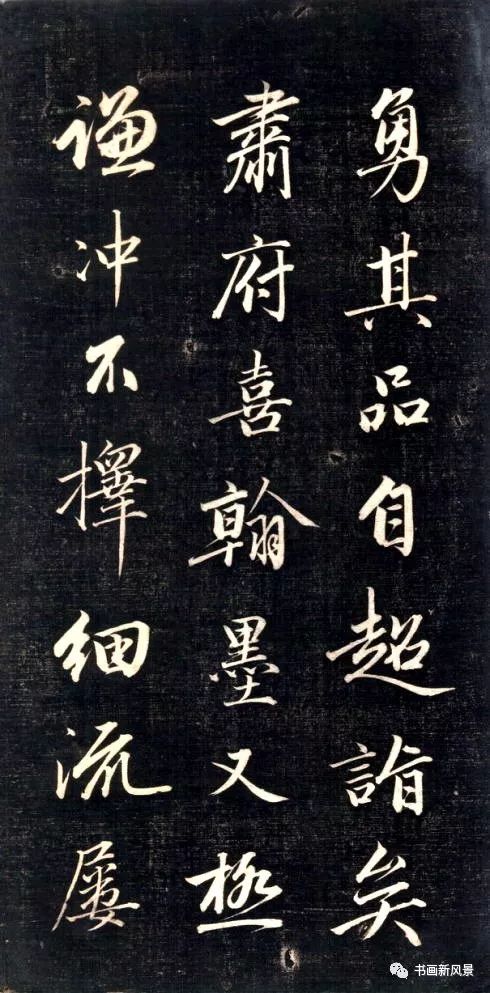 勇其品自超詣矣
肅府喜翰墨又極
謙冲不擇細流屢
书画新风景